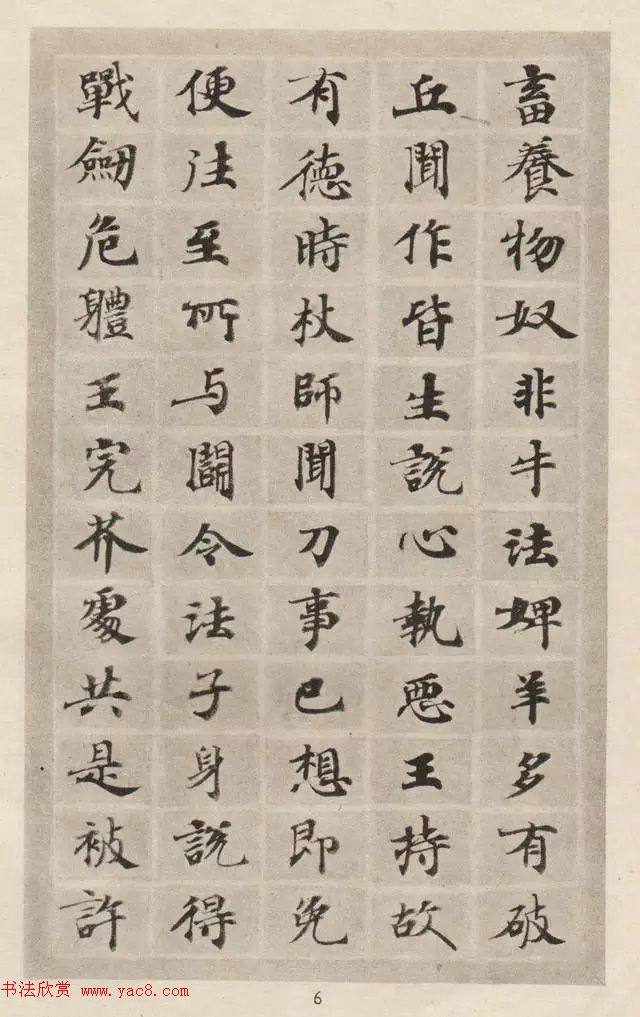 畜養物奴非牛法婢羊多有破
丘聞作皆生說心執惡王持故
有德時杖師聞刀事已想即免
便注至所与鬪令法子身說得
戰劒危體王完芥處共是被許
书法欣赏 www.yac8.com
6